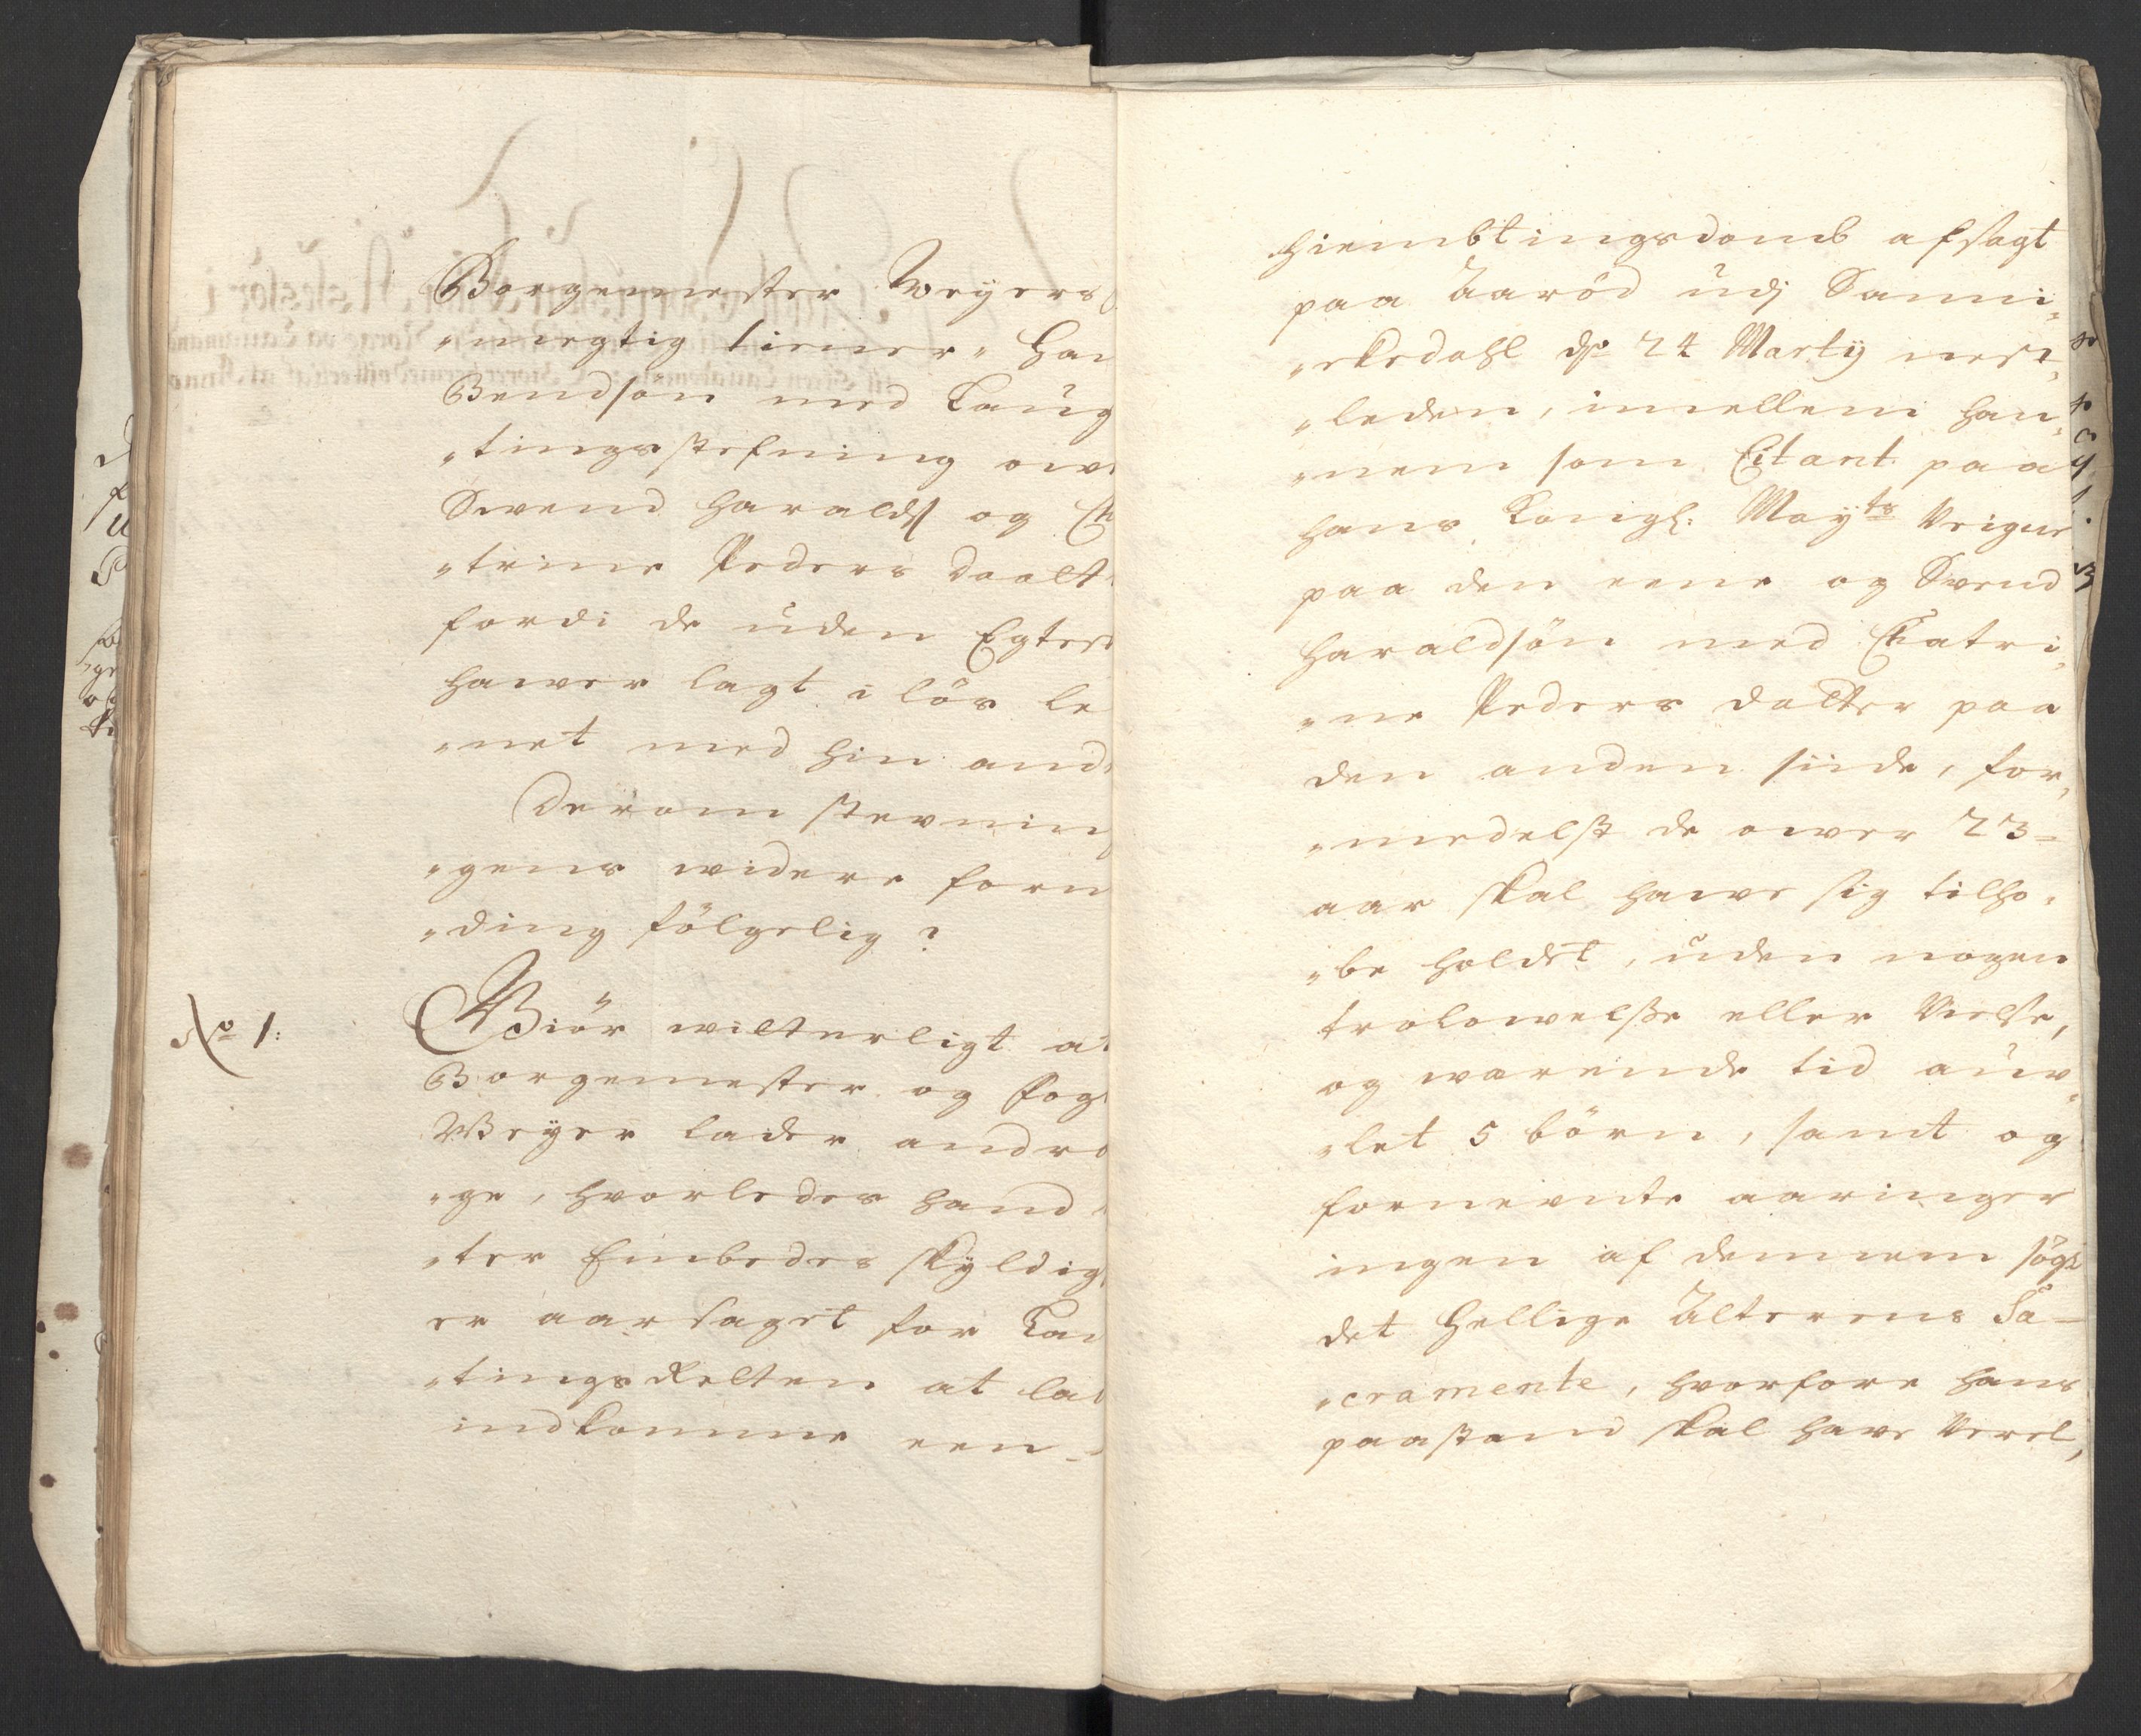 Borgemester Weyers
„megtig tiener, Han
Bendson med Laug
„tingsstefning ow
Swend Haralds og C
„trine Peders daatt
fordi de uden Egtes
hawer lagt i løs le
„net med hin and
Derom stevnin
„gens widere form
„ding følgelig?
No 1:
Giør witterligt at
Borgemester og fog
Weyer lader andra
„ge, hvorledes hand
„ter Embedes skyldig
er aarsaget for Lau
„tingsRetten at lad
indkomme een
Hiembtingsdomb afsagt
paa Aarød udj Sanni„
„ckedahl d: 24 Martij nest„
„leden, imellem han„
„nem som Citant paa
hans Kongl: Mayts Veigne
paa den eene og Swend
Haraldsøn med Chatri„
„ne Peders datter paa
den anden siide, for„
„medelst de ower 23
aar skal hawe sig tilho„
„be holdet, uden nogen
trolowelsse eller Vielse,
og warende tid auv„
„let 5 børn, samt og
fornevnte aaringer
ingen af dennem søgt
det Hellige Alterens Sa„
„cramente, hvorfore hans
paastand skal have Verel„